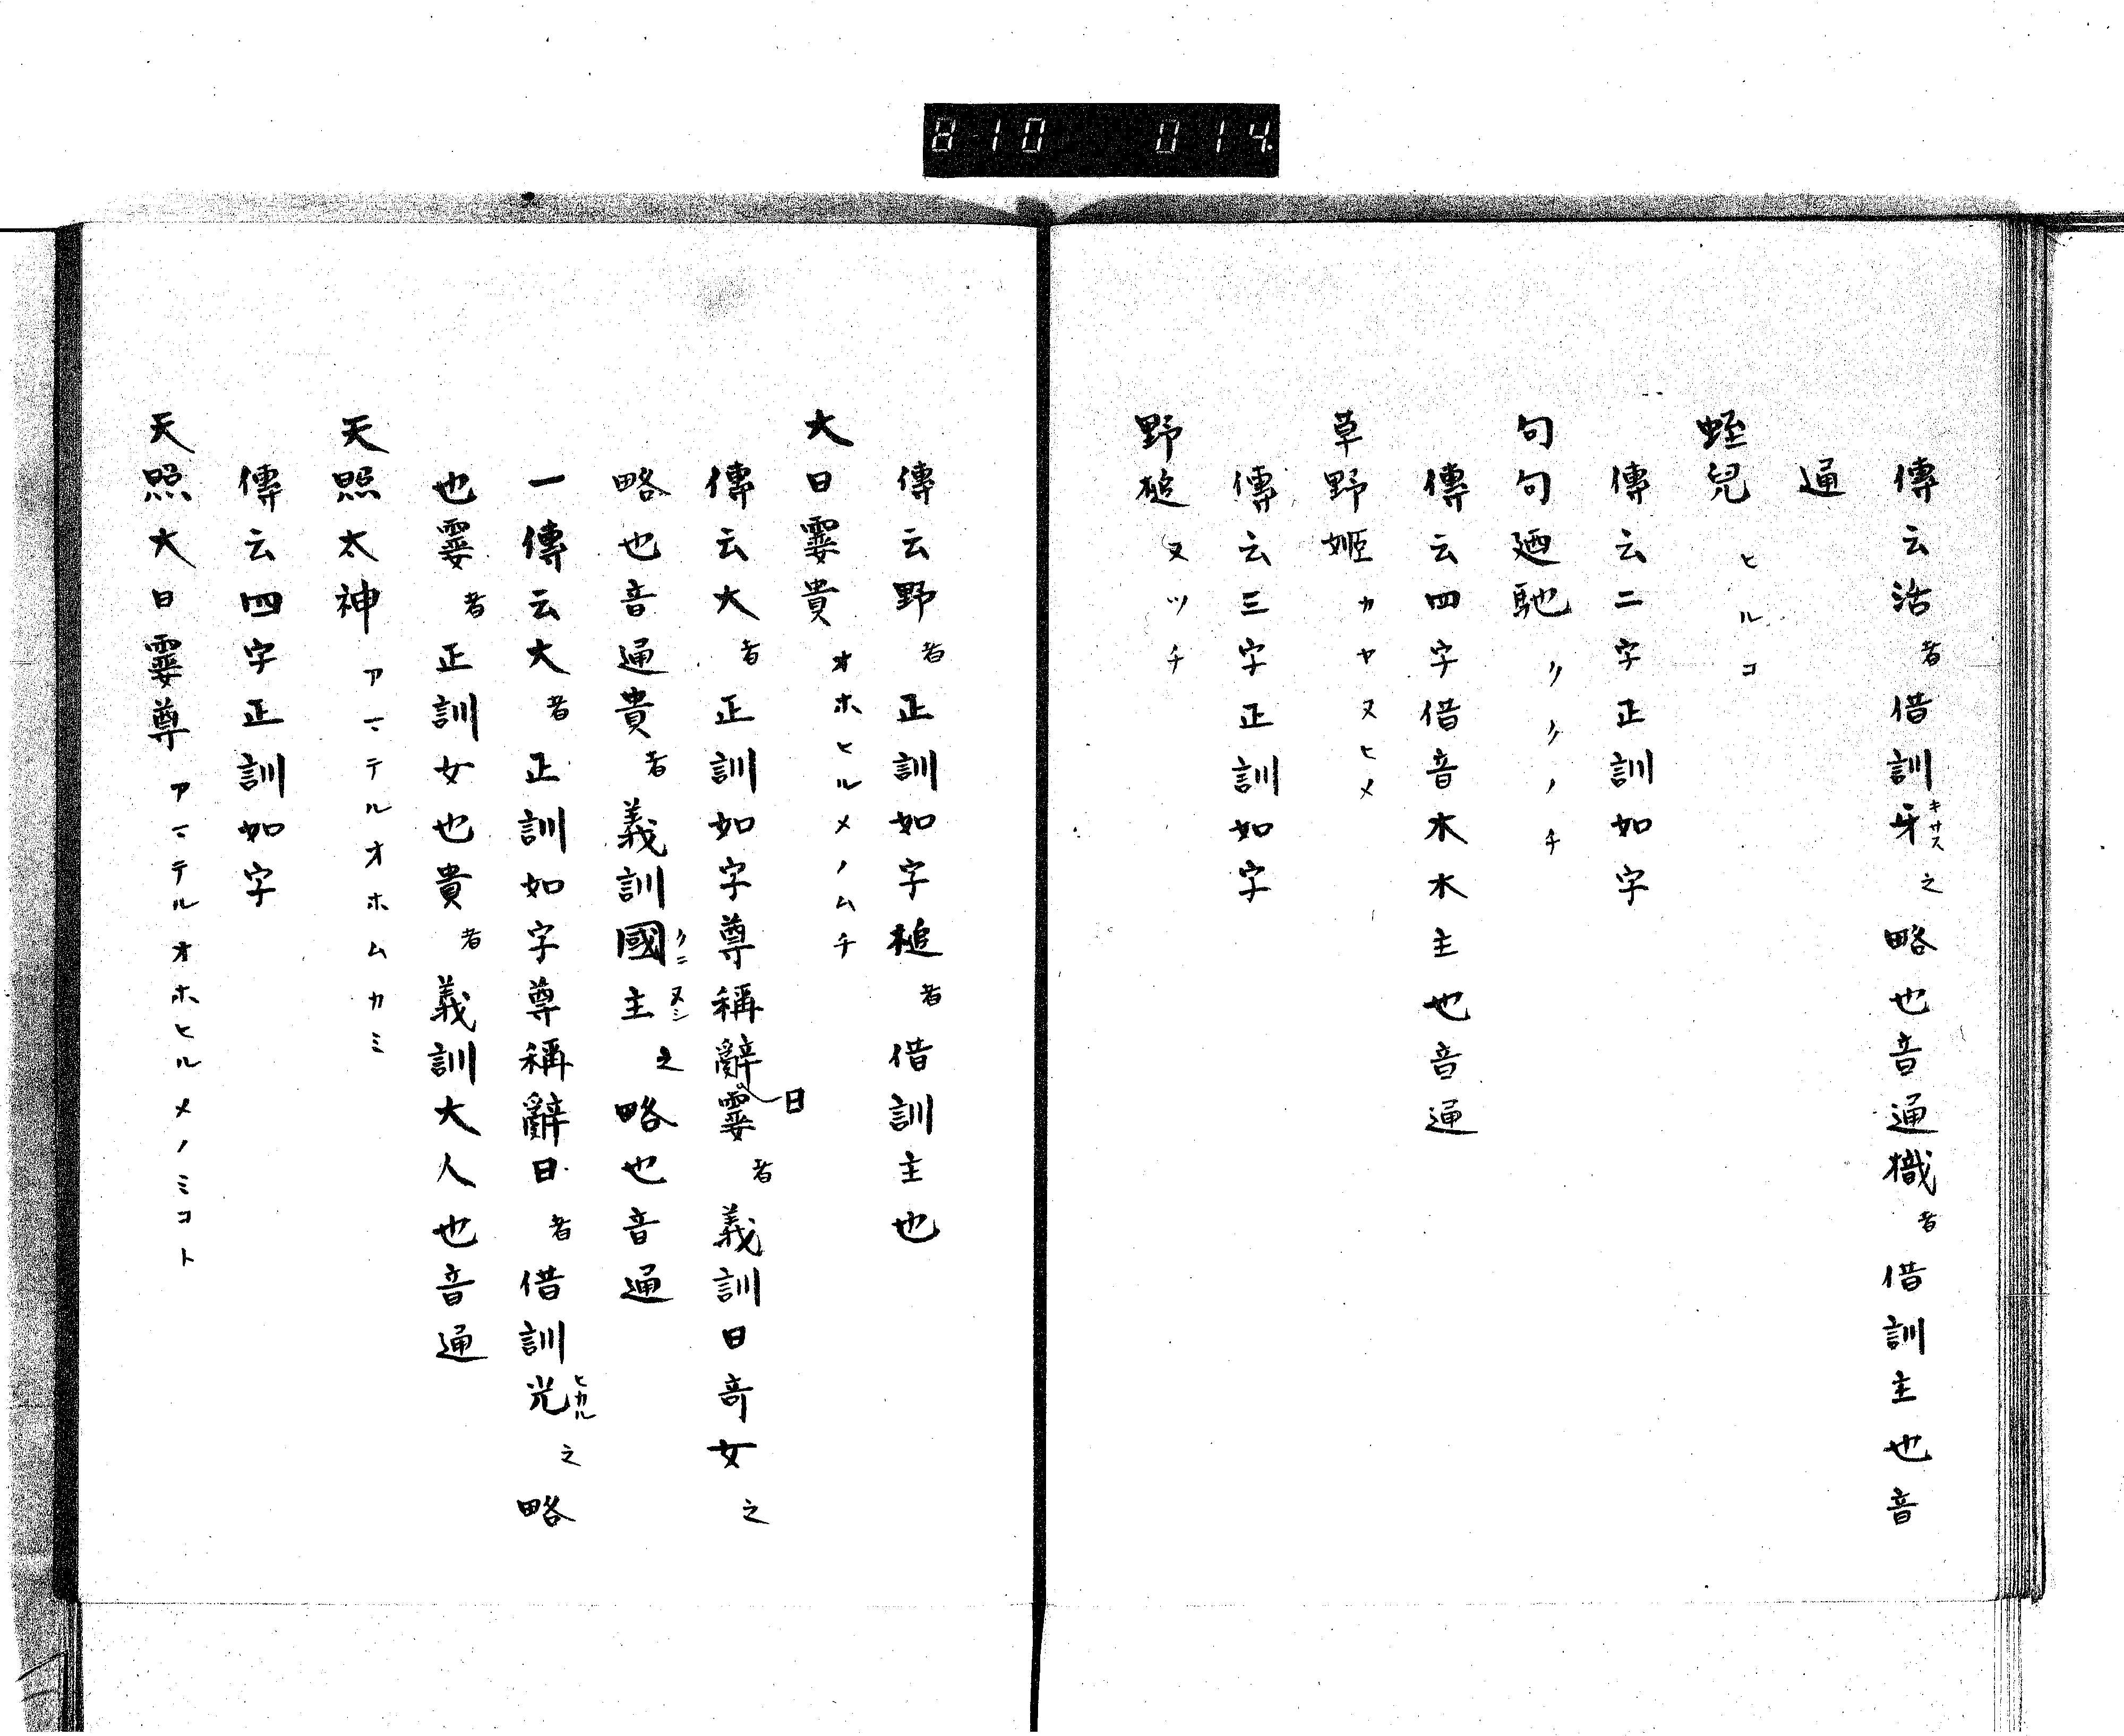 810 014
傳云活者借訓牙キサス之略也音通樴者借訓主也音
通
蛭兒 ヒルコ
傳云二字正訓如字
句句廼馳 クノチ
傳云四字借音木木主也音通
草野姫 カヤヌヒメ
傳云三字正訓如字
野槌 ヌツチ
傳云野者正訓如字槌者借訓主也
大日孁貴 オホヒルメノムチ
傳云大者正訓如字尊稱辭日孁者義訓日奇女之
略也音通貴者義訓國主クニヌシ之略也音通
一傳云大者正訓如字尊稱辭日者借訓光ヒカル之略
也孁者正訓女也貴者義訓大人也音通
天照太神 アマテルオホムカミ
傳云四字正訓如字
天照大日孁尊 アマテルオホヒルメノミコト